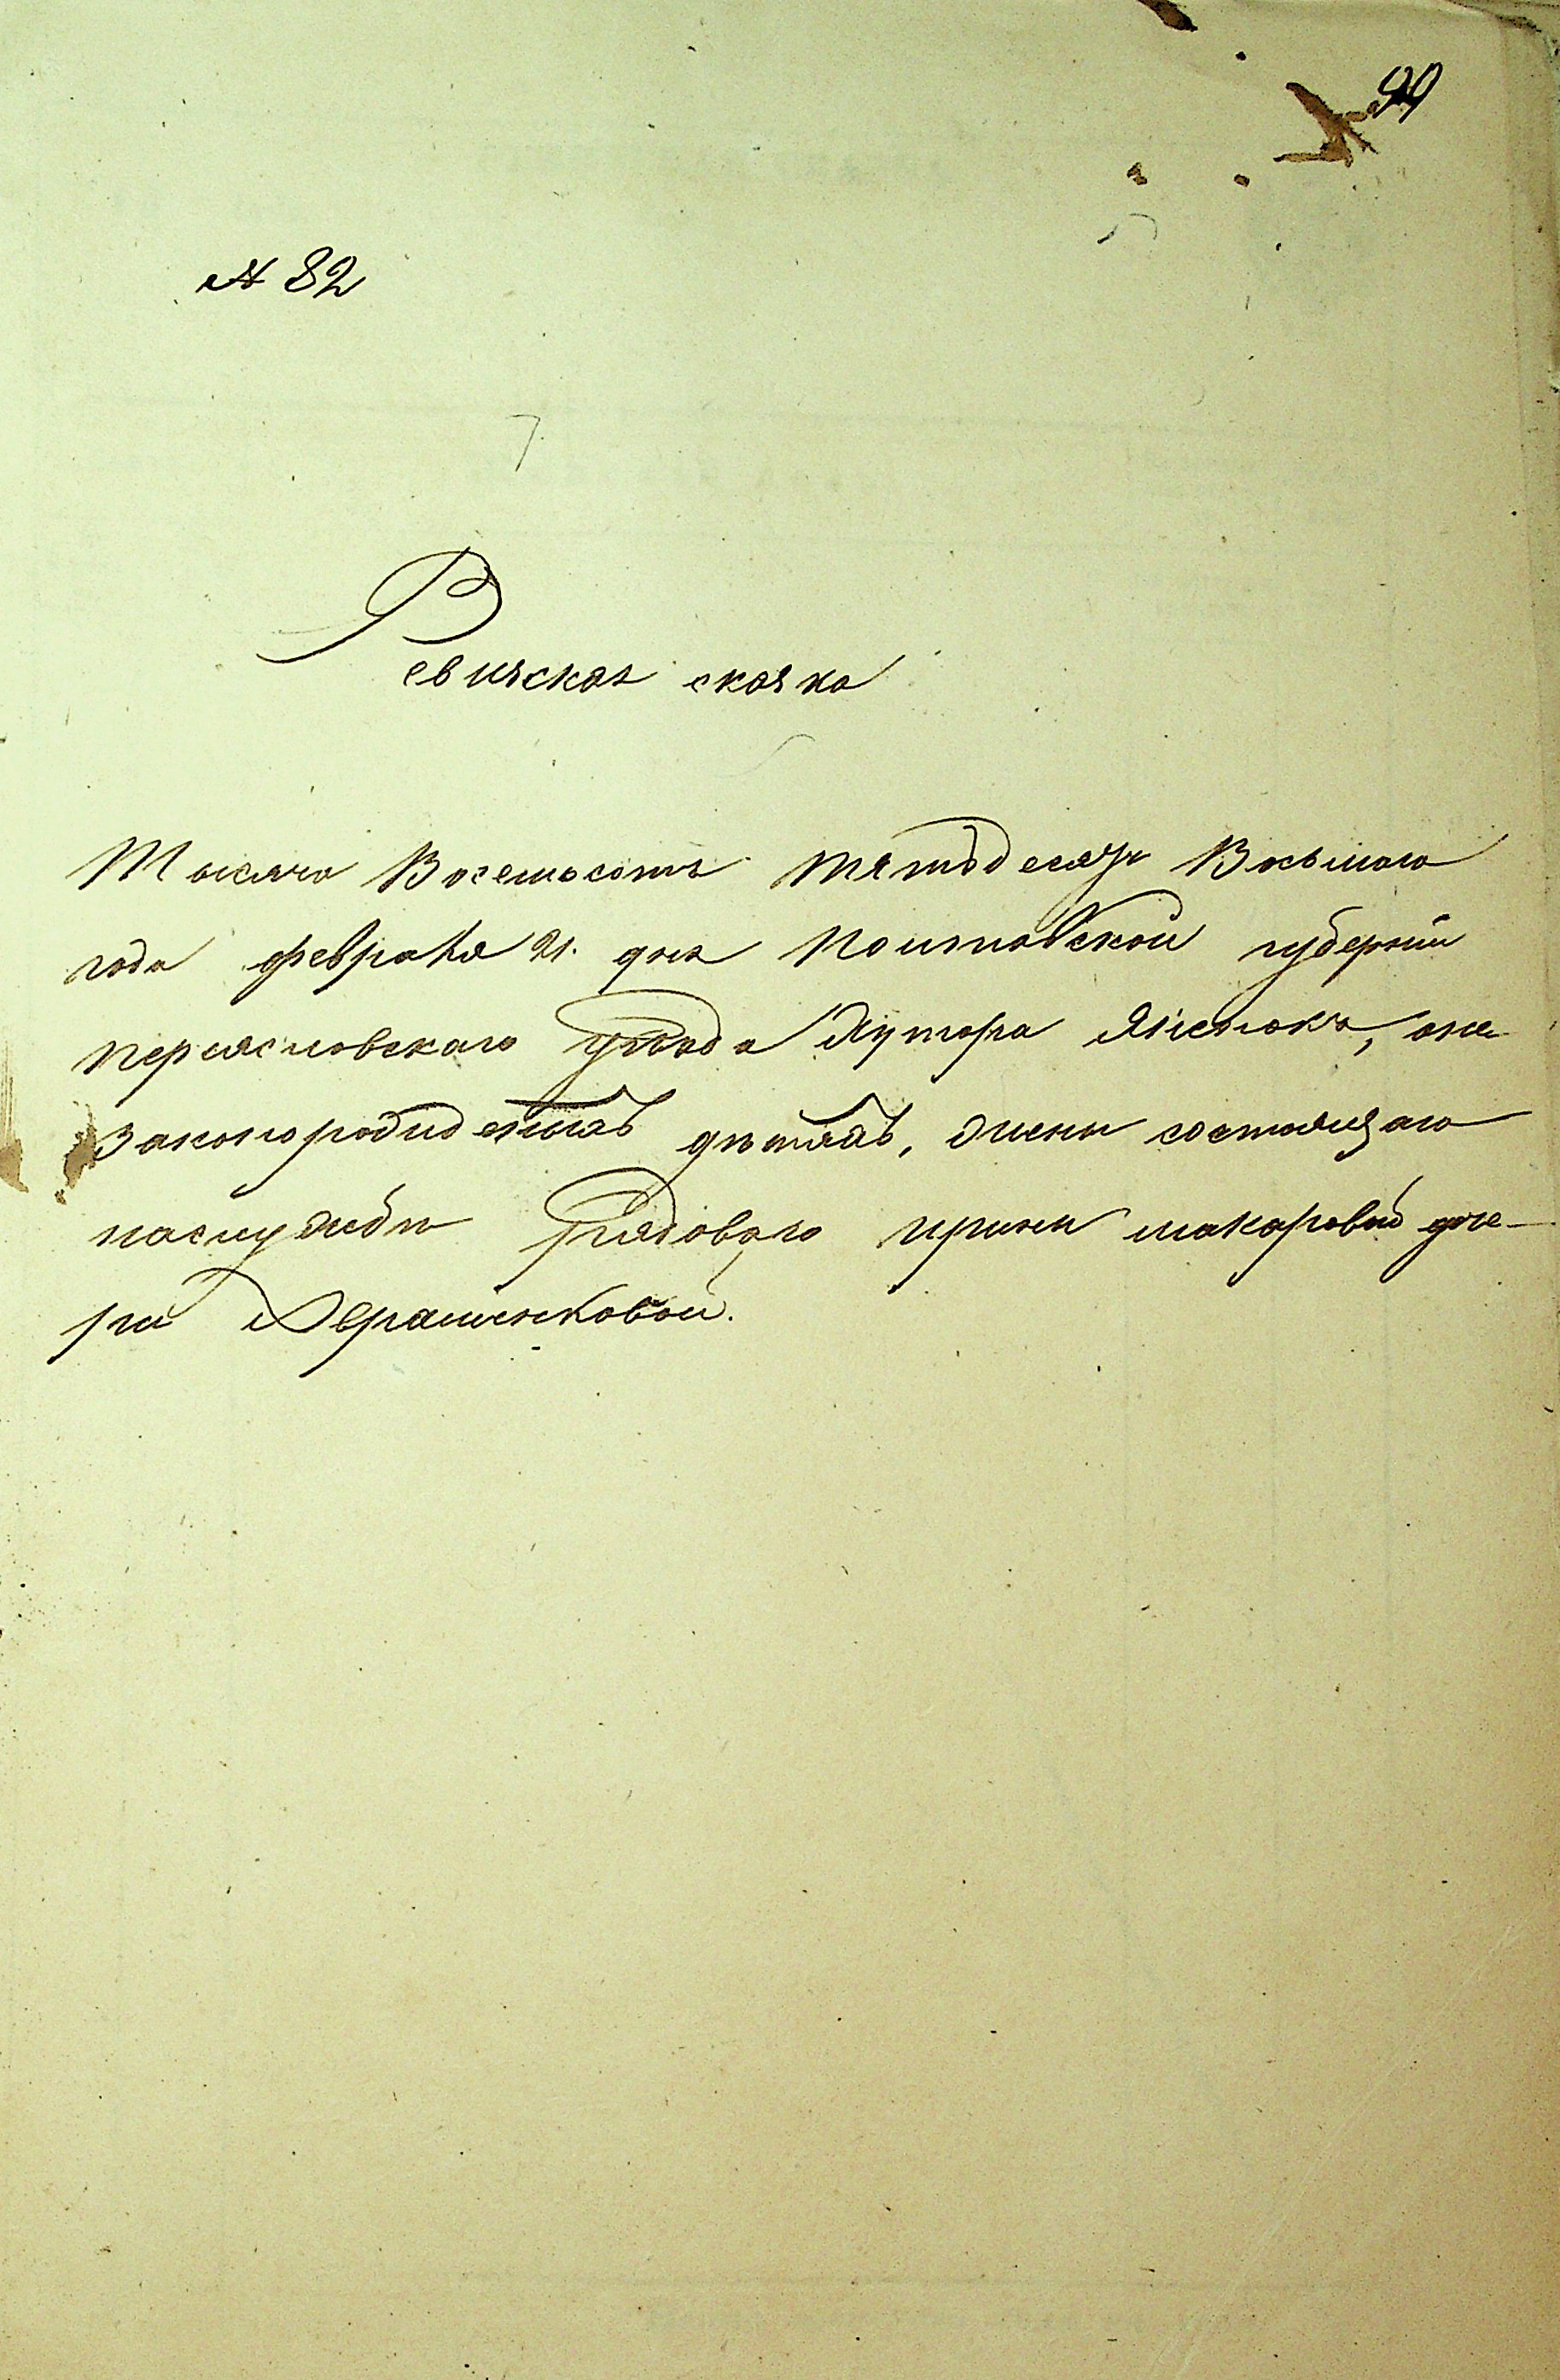 99
№ 82
Ревизская сказка
Тысяча Восемьсотъ пятьдесятъ Восьмаго
года февраля 21. дня Полтавской губерніи
переяславскаго уѣзда Хутора оне
законорожденныхъ дѣтяхъ, жены состоящаго
наслужбѣ рядоваго ирины макаровой доче-
ри Авраменковой.